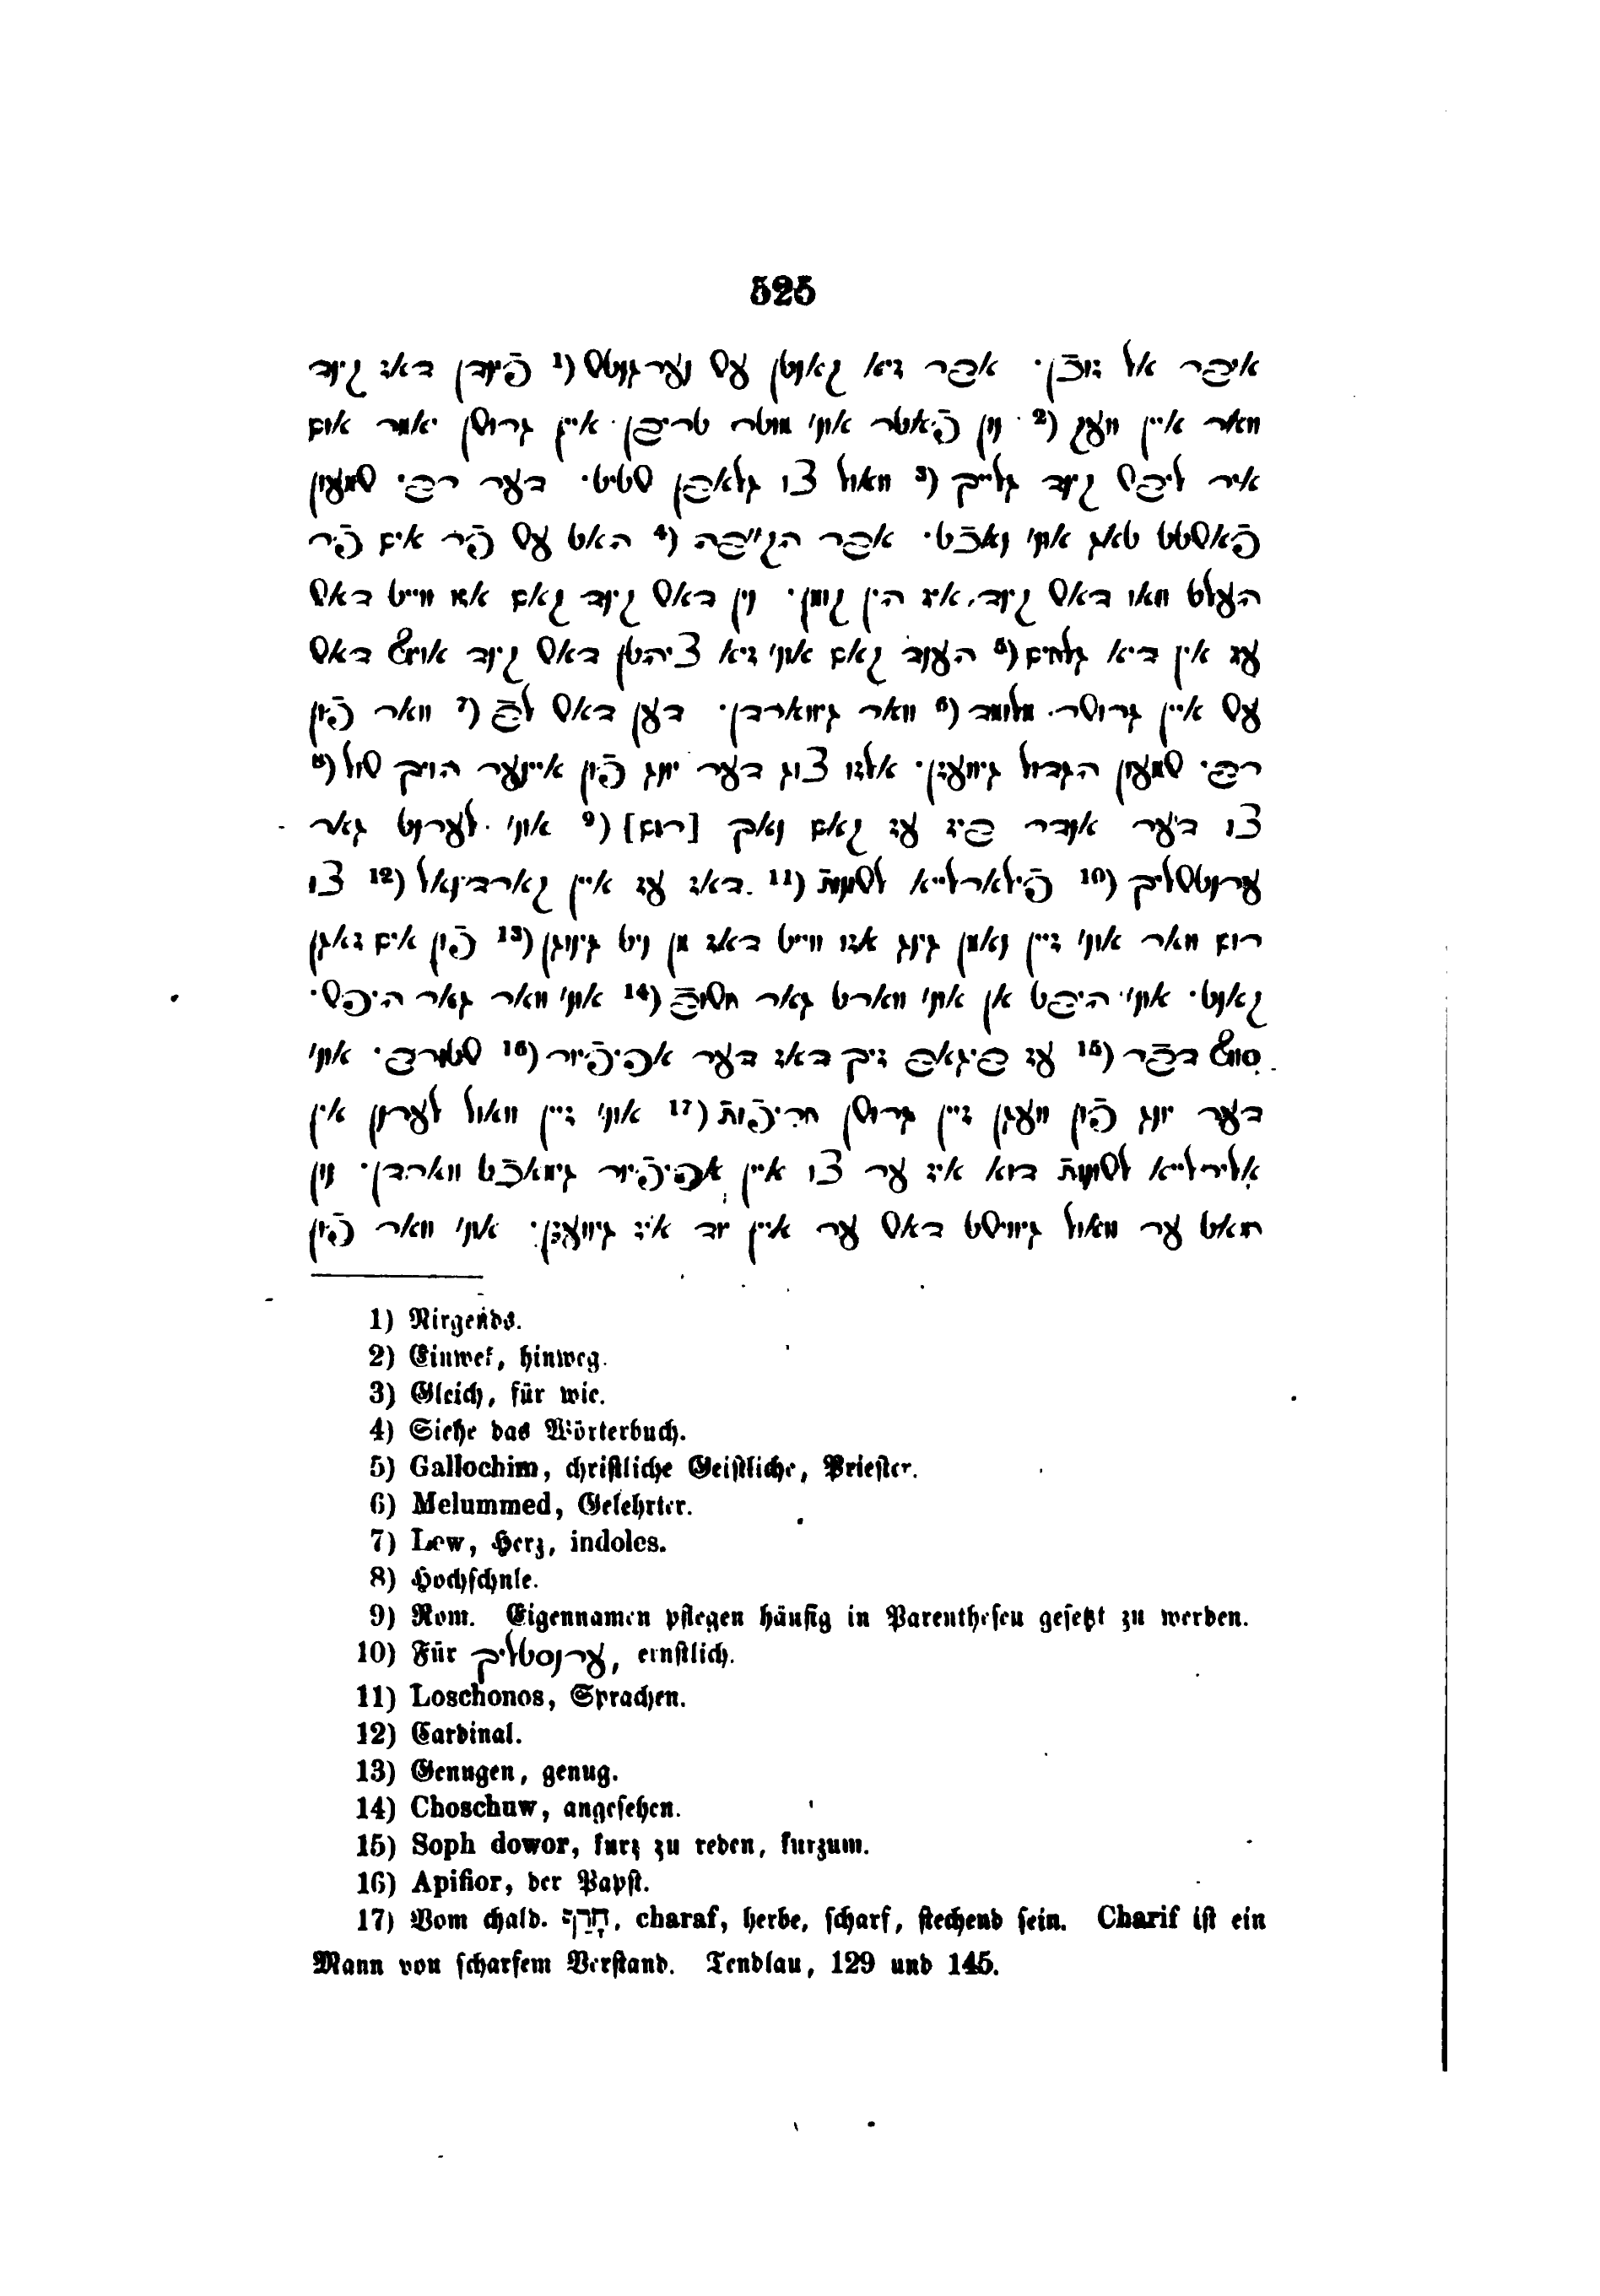 525
איבר אל זוכֿן· אבר זיא קאנטן עש נערגנטש (1 פֿינדן דאז קינד
וואר איין וועק (2· נון פֿאטר אונ׳ מוטר טריבן איין גרושן יאמר אום
איר ליבש קינד גלייך (3 וואול צו גלאבן שטיט· דער רבי שמעון
פֿאשטט טאג אונ׳ נאכֿט· אבר הקי״בה (4 האט עש פֿר אים פֿר
העלט וואו דאש קינד, איז הין קומן· נון דאש קינד קאם אזו ווייט דאש
עז אין דיא גלחים (5 הענד קאם אונ׳ זיא ציהטן דאש קינד אויף דאש
עש איין גרושר מלומד (6 וואר גיווארדן· דען דאש לבֿ (7 וואר פֿון
רבי שמעון הגדול גיוועזן· אלזו צוג דער יונג פֿון איינער הויך שול (8
צו דער אנדר ביז עז קאם נאך [רום] (9 אונ׳ לערנט גאר
ערנטשליך (10 פֿילארלייא לשונות (11 דאז עז איין קארדינאל (12 צו
רום וואר אונ׳ זיין נאמן גינג אזו ווייט דאז מן ניט גינוגן (13 פֿון אים זאגן
קאנט· אונ׳ היבט אן אונ׳ ווארט גאר חשובֿ (14 אונ׳ וואר גאר היפש·
סוף דבֿר (15 עז ביגאב זיך דאז דער אפיפֿיור (16 שטורב· אונ׳
דער יונג פֿון וועגן זיין גרושן חריפֿות (17 אונ׳ זיין וואול לערנן אין
אלירלייא לשונות דוא איז ער צו איין אפיפֿיור גימאכֿט ווארדן· נון
וואט ער וואול גיווישט דאש ער איין יוד איז גיוועזן· אונ׳ וואר פֿון
1) Nirgends.
2) Einwek, hinweg.
3) Gleich, für wie.
4) Siehe das Wörterbuch.
5) Gallochim, christliche Geistliche, Priester.
6) Melummed, Gelehrter.
7) Lew, Herz, indoles.
8) Hochschule.
9) Rom. Eigennamen pflegen häufig in Parenthesen gesetzt zu werden.
10) Für ערנסטליך, ernstlich.
11) Loschonos, Sprachen.
12) Cardinal.
13) Genugen, genug.
14) Choschuw, angesehen.
15) Soph dowor, kurz zu reden, kurzum.
16) Apifior, der Papst.
17) Vom chald. חָרַף, charaf, herbe, scharf, stechend sein. Charif ist ein
Mann von scharfem Verstand. Tendlau, 129 und 145.